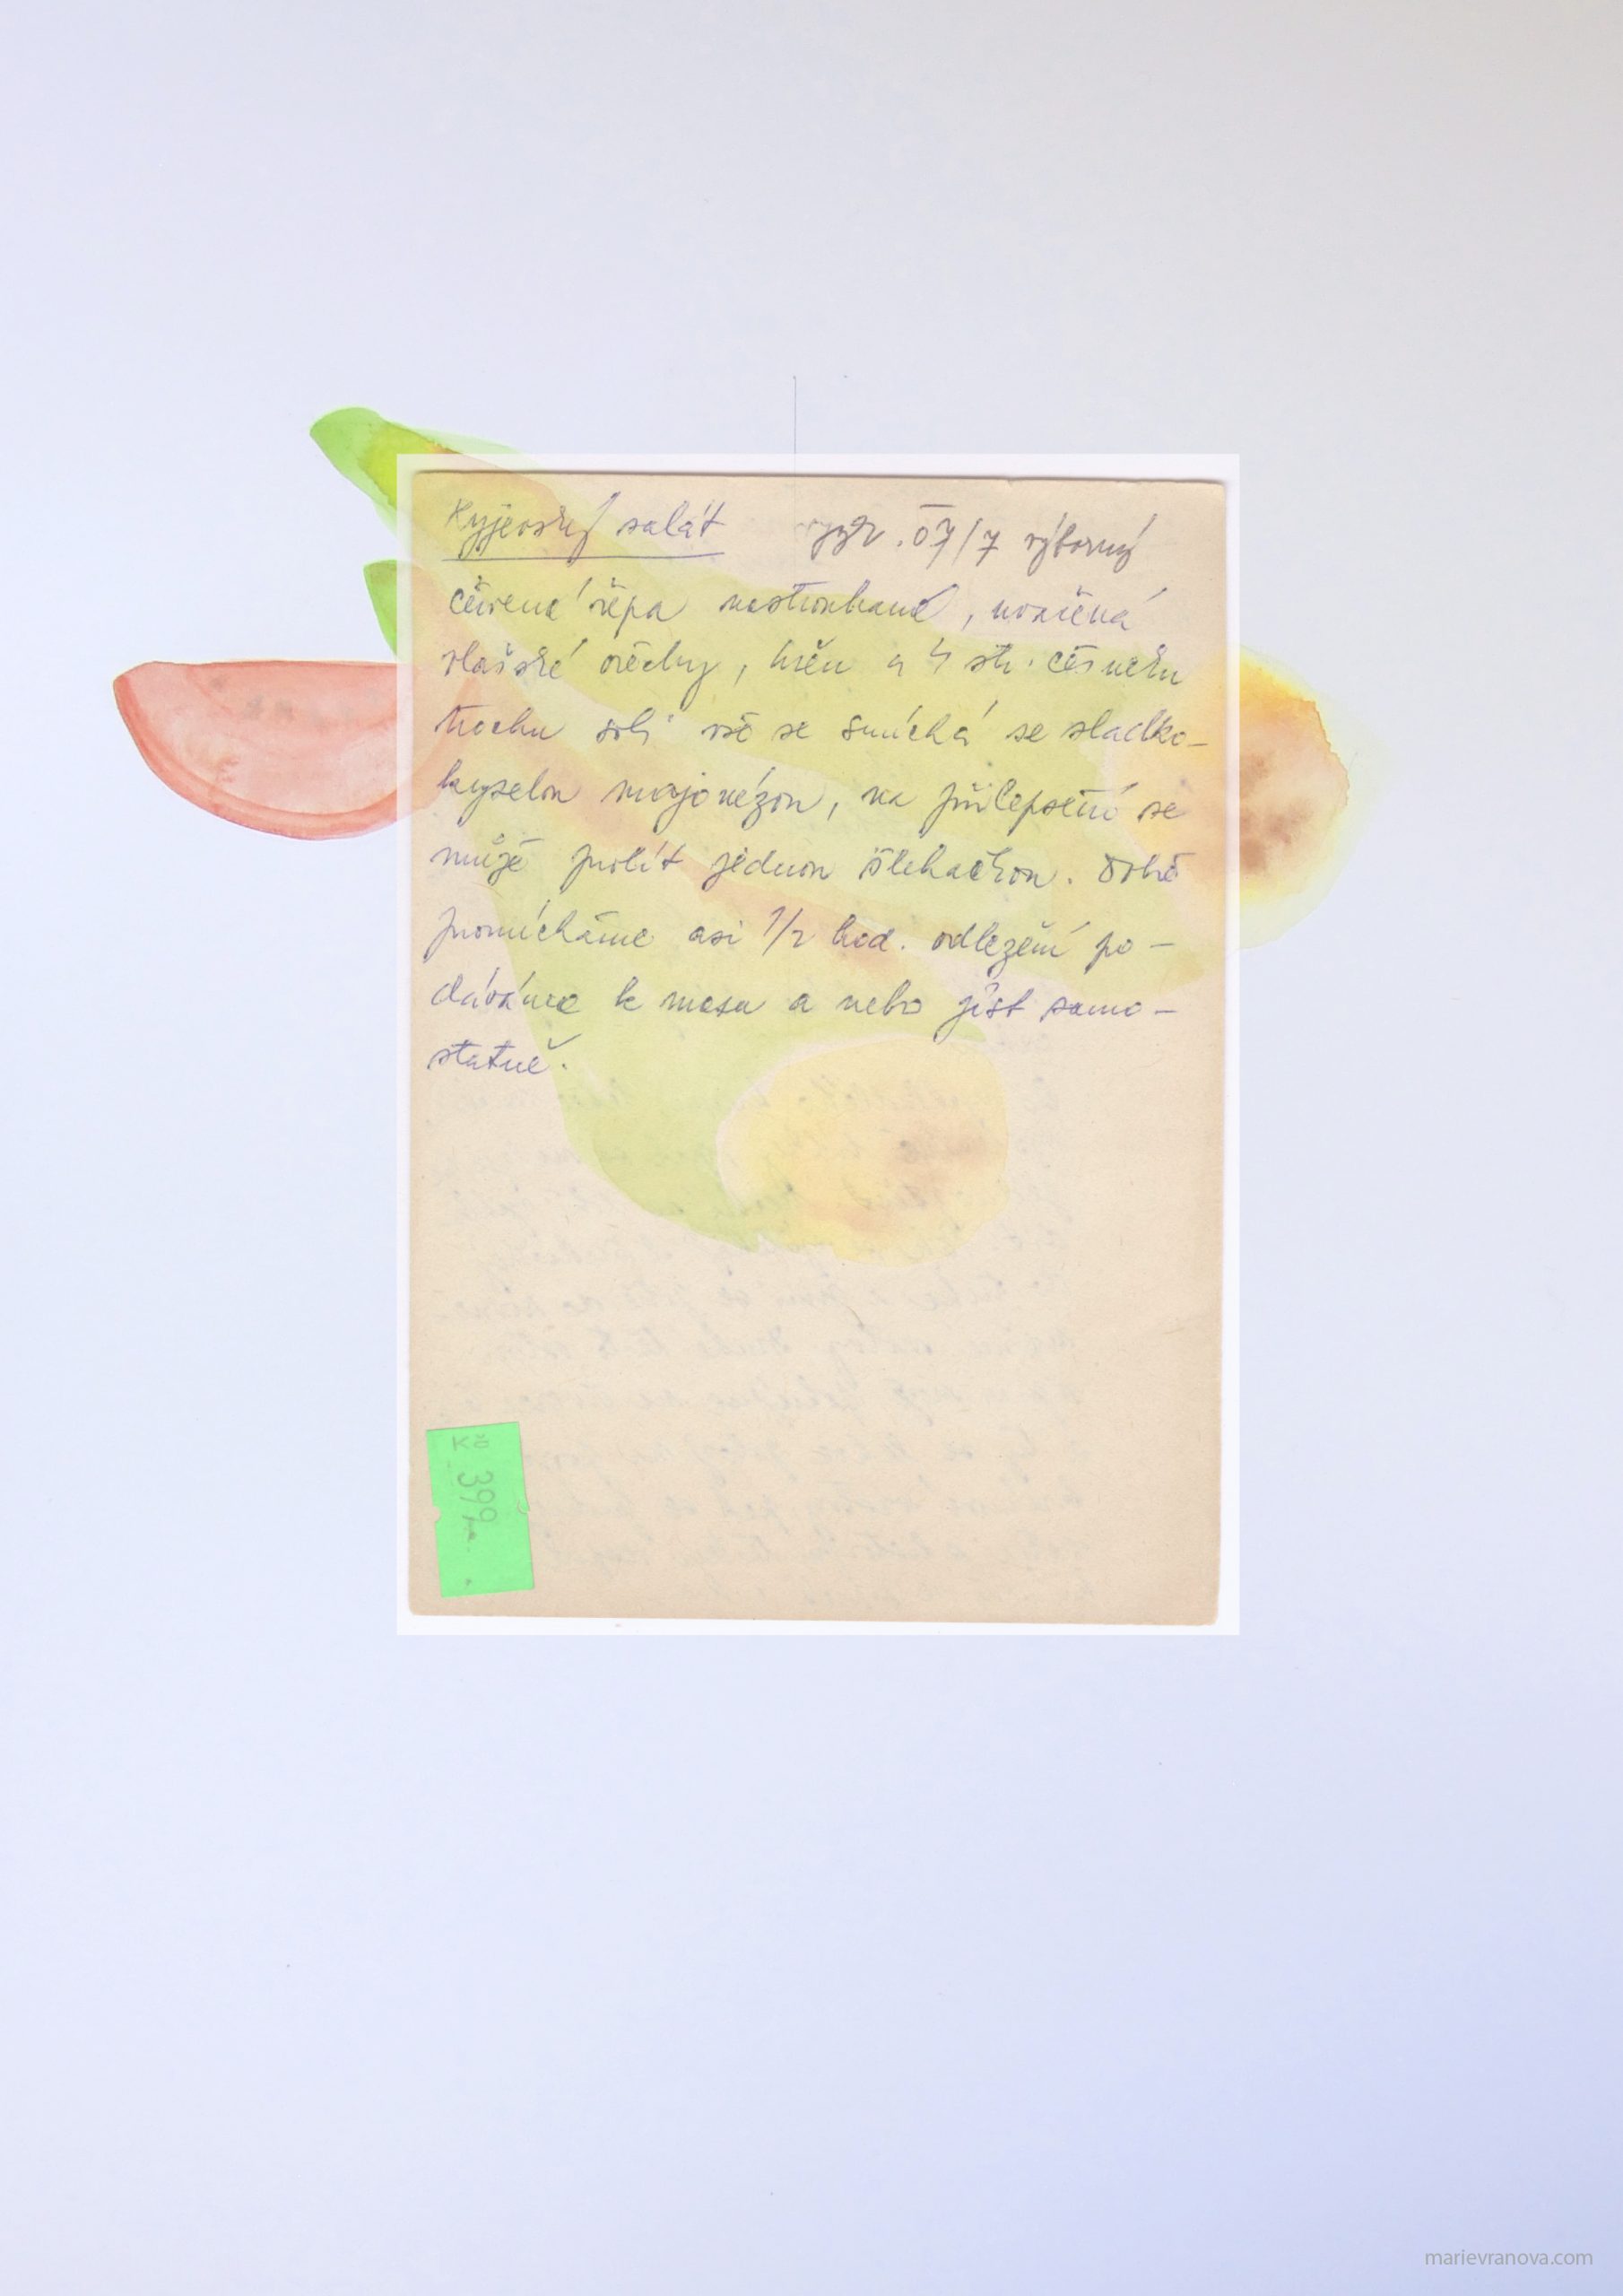 Kyjevský salát vyzk. 07/7 výborný
červená řepa nastrouhaná, uvařená
vlašské ořechy, křen a 4 str. česneku
trochu soli vše se smíchá se sladko-
kyselou majonézou, na přilepšení se
může prolít jednou šlehačkou. Dobře
promícháme asi 1/2 hod. odležení po-
dáváme k masu a nebo jíst samo-
statně.
Kč
399,-
marievranova.com